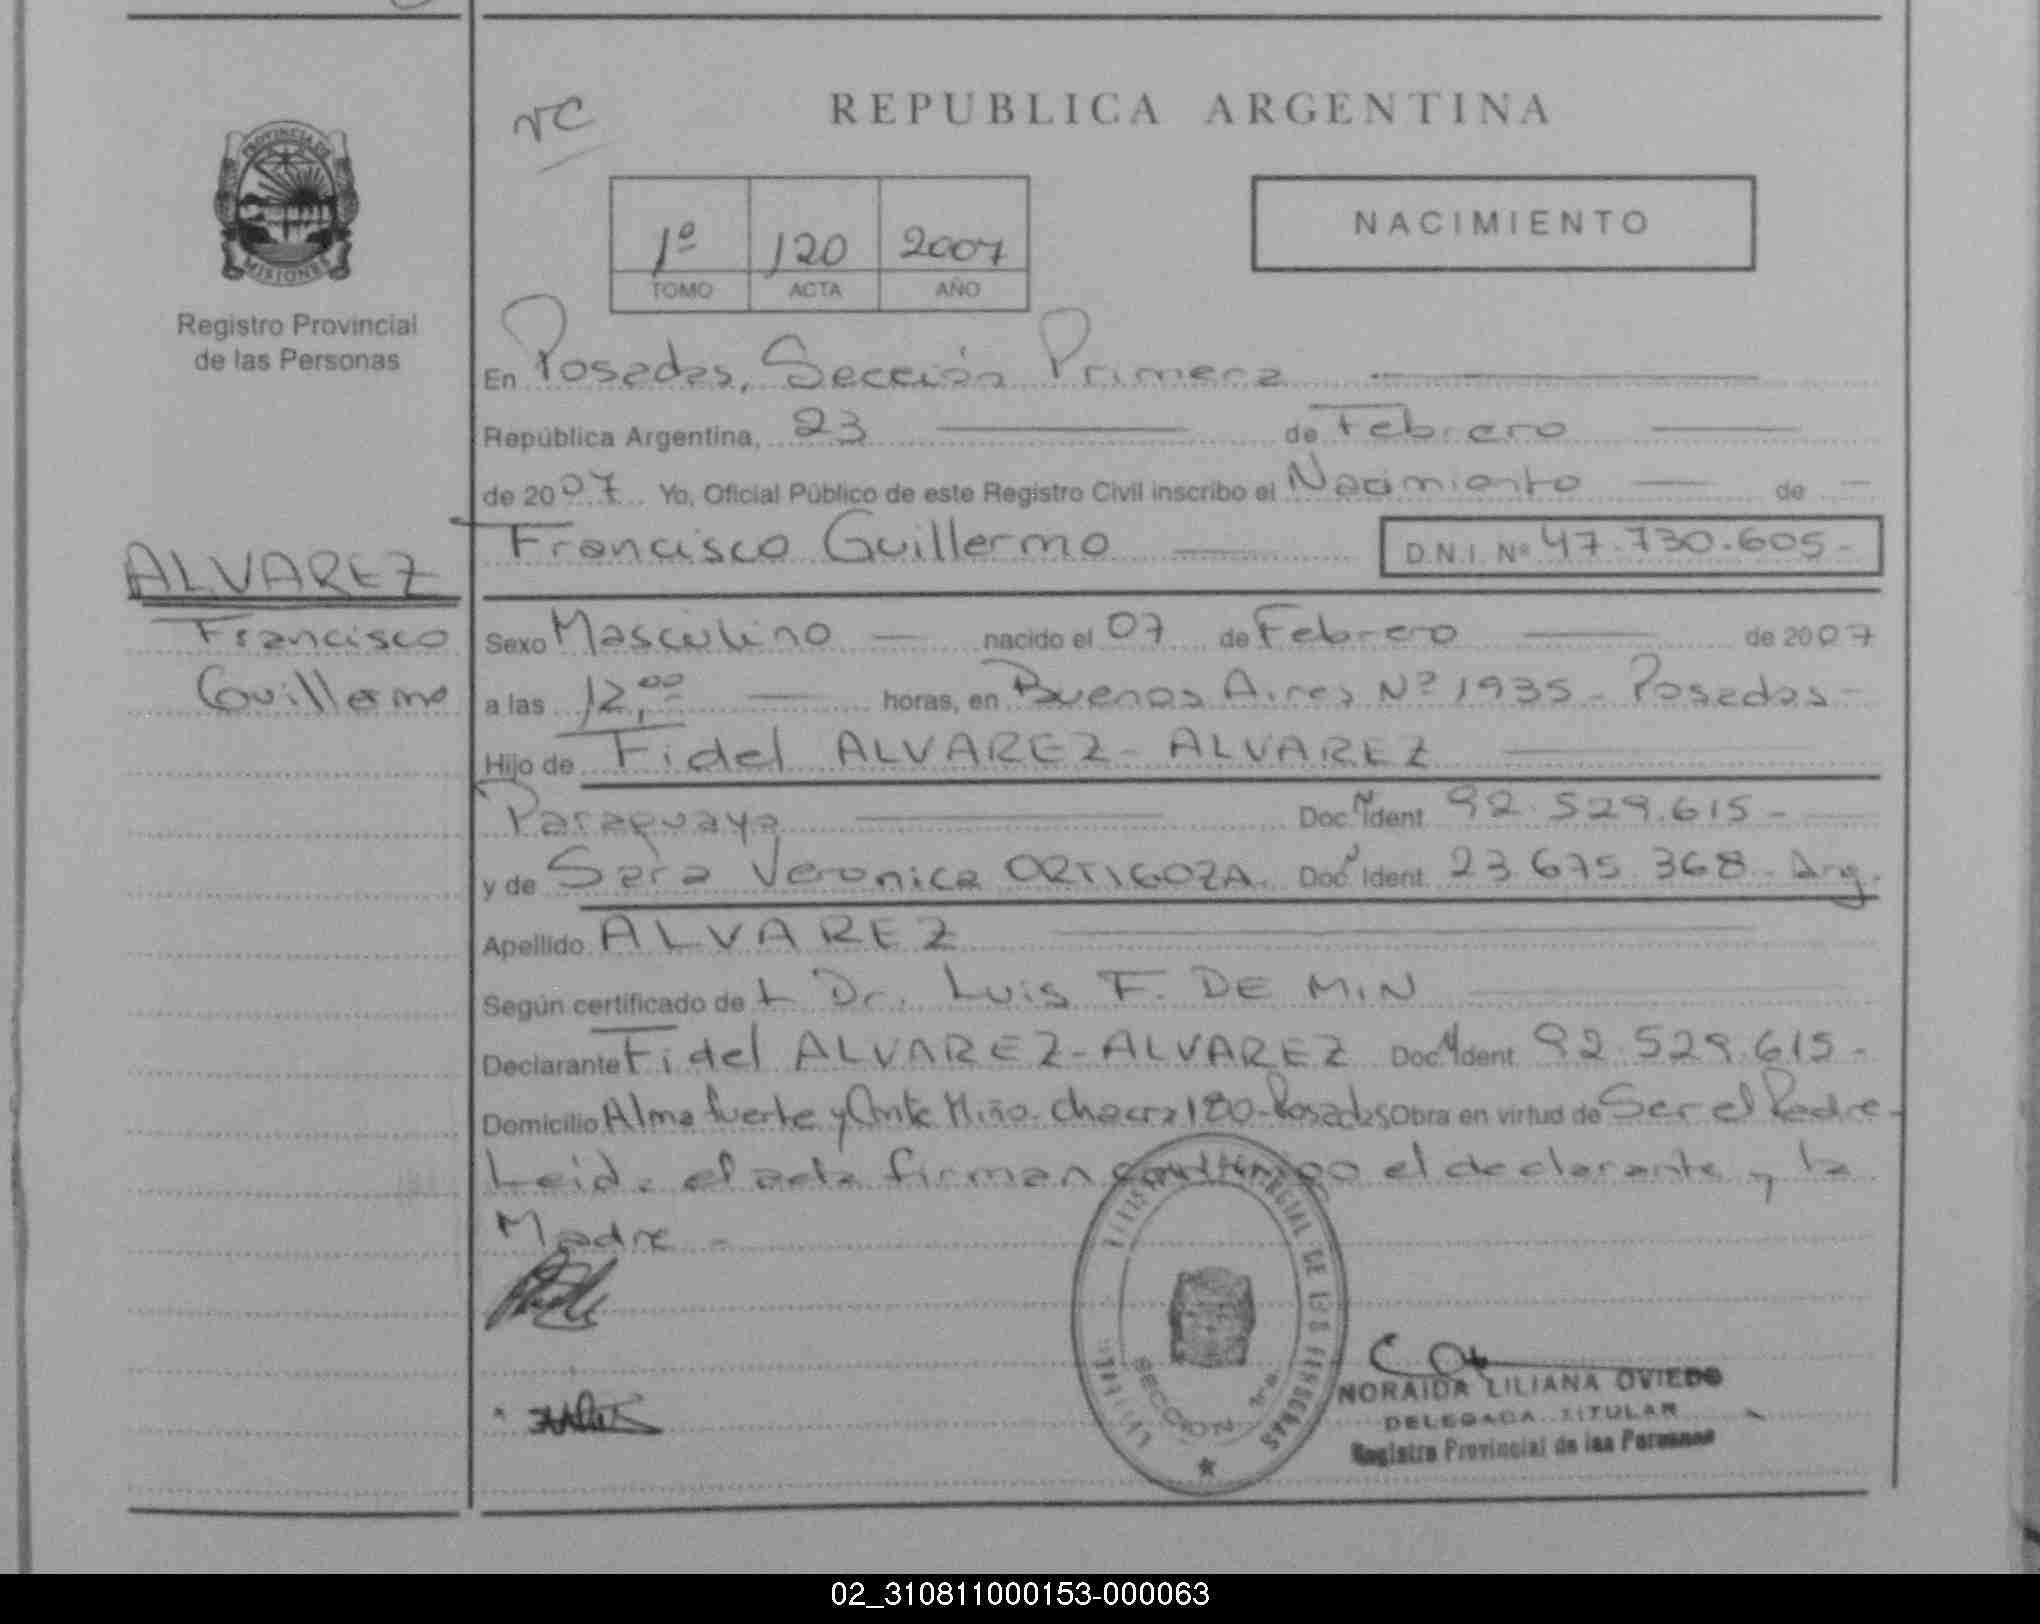 NC
REPUBLICA ARGENTINA
PROVINCIA DE
MISIONES
Registro Provincial
de las Personas
1º 120 2007
TOMO ACTA AÑO
NACIMIENTO
En Posadas, Sección Primera
República Argentina, 23 de Febrero
de 2007 Yo, Oficial Público de este Registro Civil inscribo el Nacimiento de
Francisco Guillermo D.N.I. Nº 47.730.605-
ALVAREZ
Francisco
Guillermo
Sexo Masculino nacido el 07 de Febrero de 2007
a las 12,00 horas, en Buenos Aires Nº 1935 - Posadas -
Hijo de Fidel ALVAREZ - ALVAREZ
Paraguaya Doc. Ident 92.529.615 -
y de Sara Veronica ORTIGOZA. Doc. Ident. 23.675.368 - Arg.
Apellido ALVAREZ
Según certificado de L Dr. Luis F. DE MIN
Declarante Fidel ALVAREZ - ALVAREZ Doc. Ident. 92.529.615 -
Domicilio Almafuerte y Miño - Chacra 180 - Posadas Obra en virtud de Ser el Padre -
Leida el acta firman conmigo el declarante y la
Madre -
PROVINCIAL DE LAS PERSONAS
SECCION 1ra.
NORAIDA LILIANA OVIEDO
DELEGADA TITULAR
Registro Provincial de las Personas
02_310811000153-000063